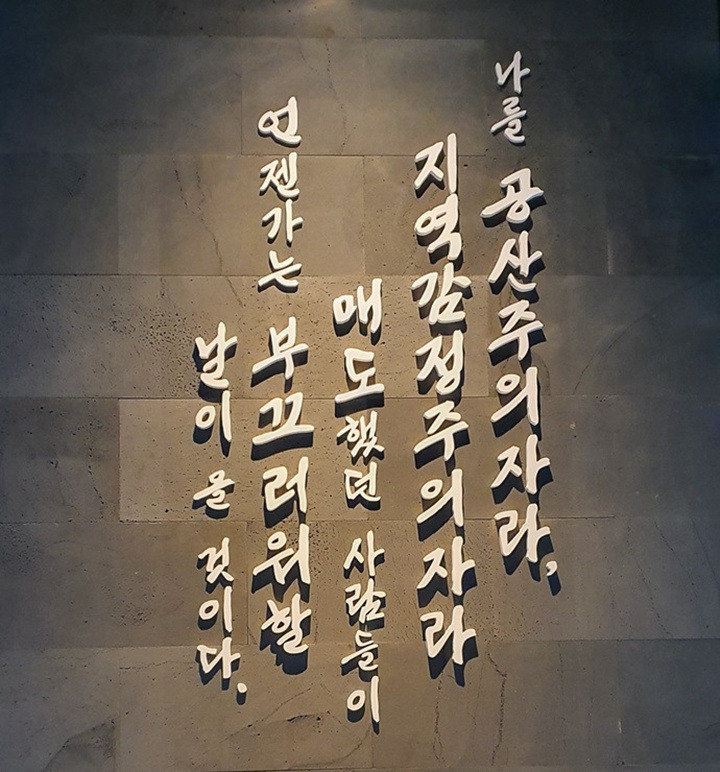 나를 공산주의자라,
지역감정주의자라
매도했던 사람들이
언젠가는 부끄러워할
날이 올 것이다.